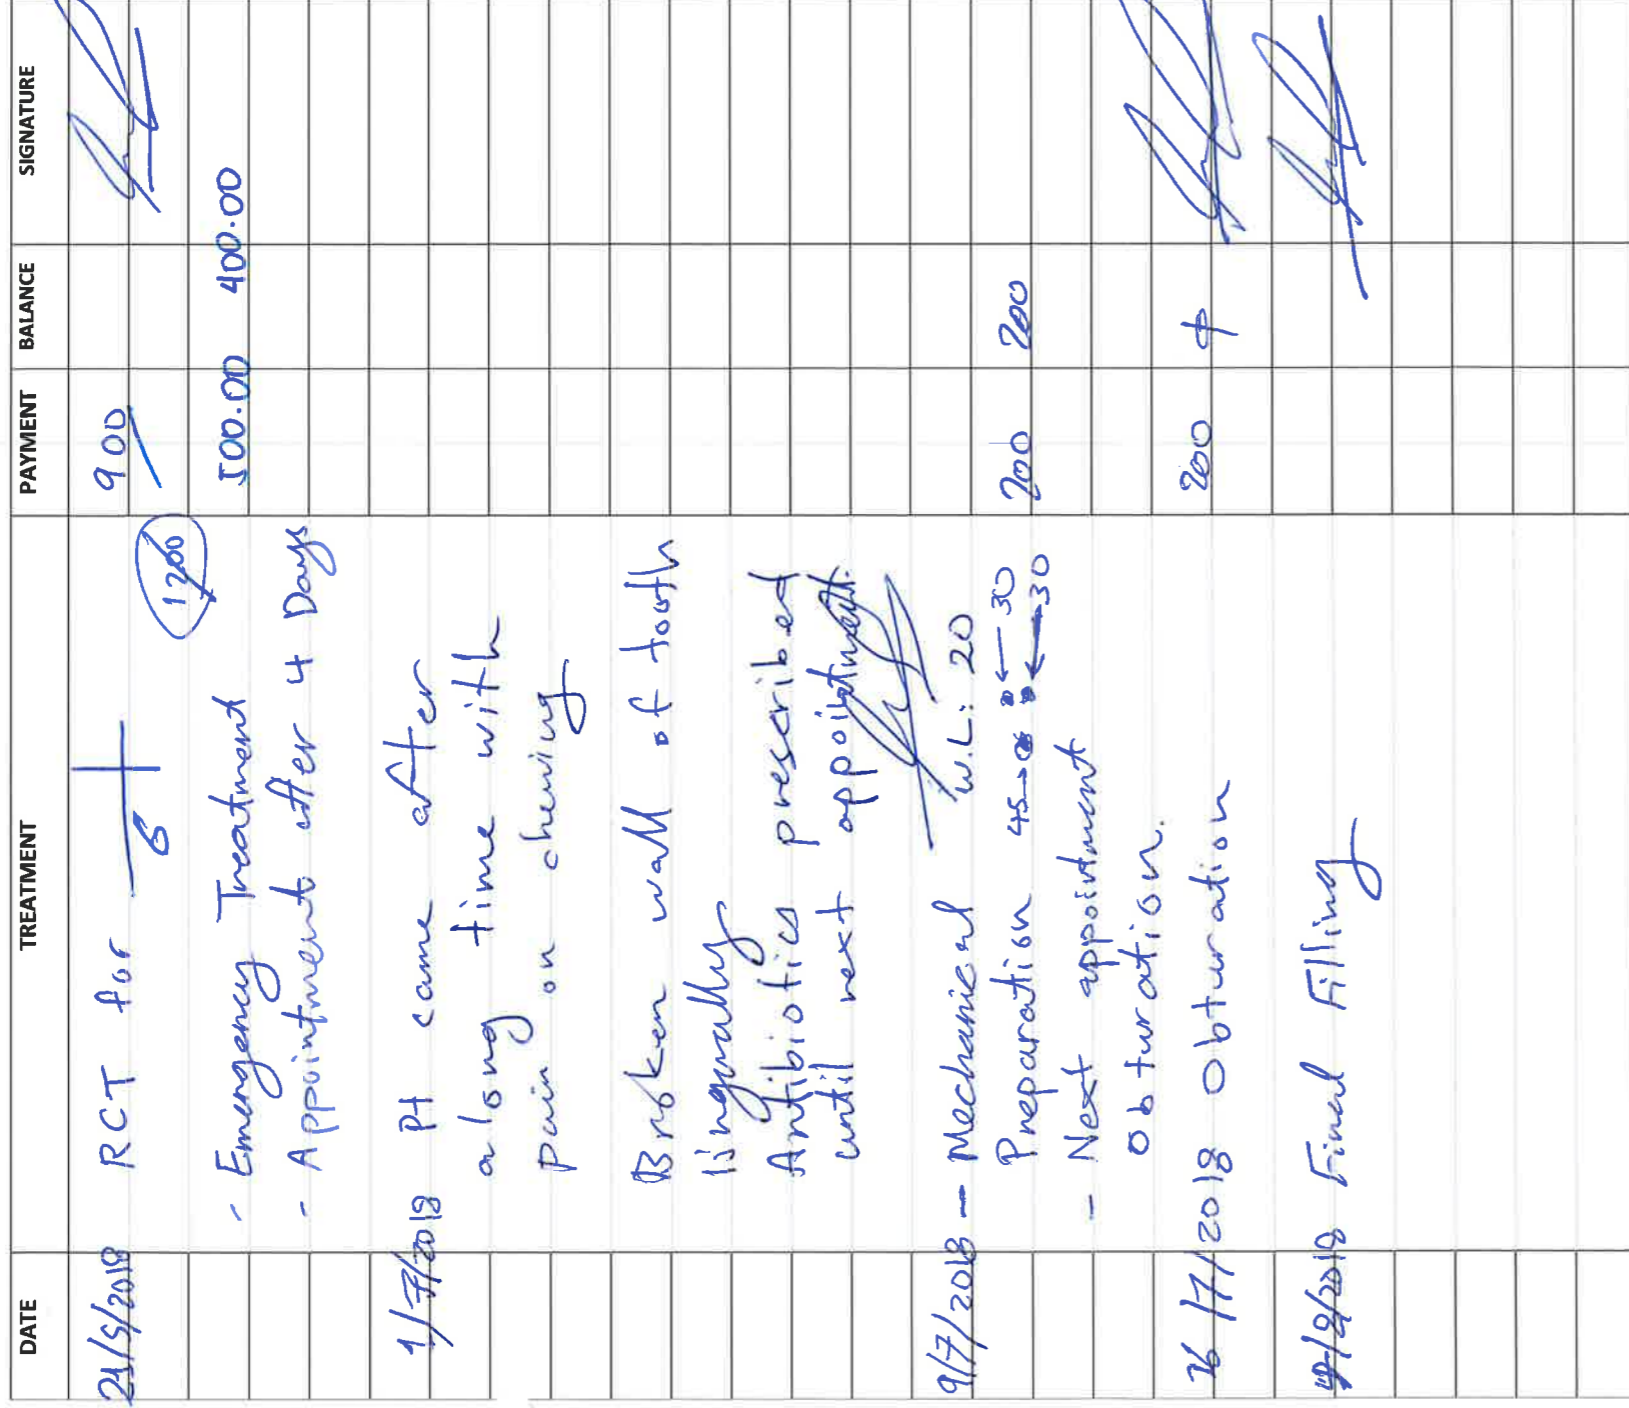 DATE TREATMENT PAYMENT BALANCE SIGNATURE
21/5/2018 RCT for 6 900
1200
- Emergency Treatment 500.00 400.00
- Appointment after 4 Days
1/7/2018 Pt came after
along time with
pain on chewing
Broken wall of tooth
lingually
Antibiotics prescribed
until next appointment.
9/7/2018 - Mechanical W.L: 20
Preparation 45→ ←30 200 200
←30
- Next appointment
Obturation.
16/7/2018 Obturation 200
/2018 Final Filling